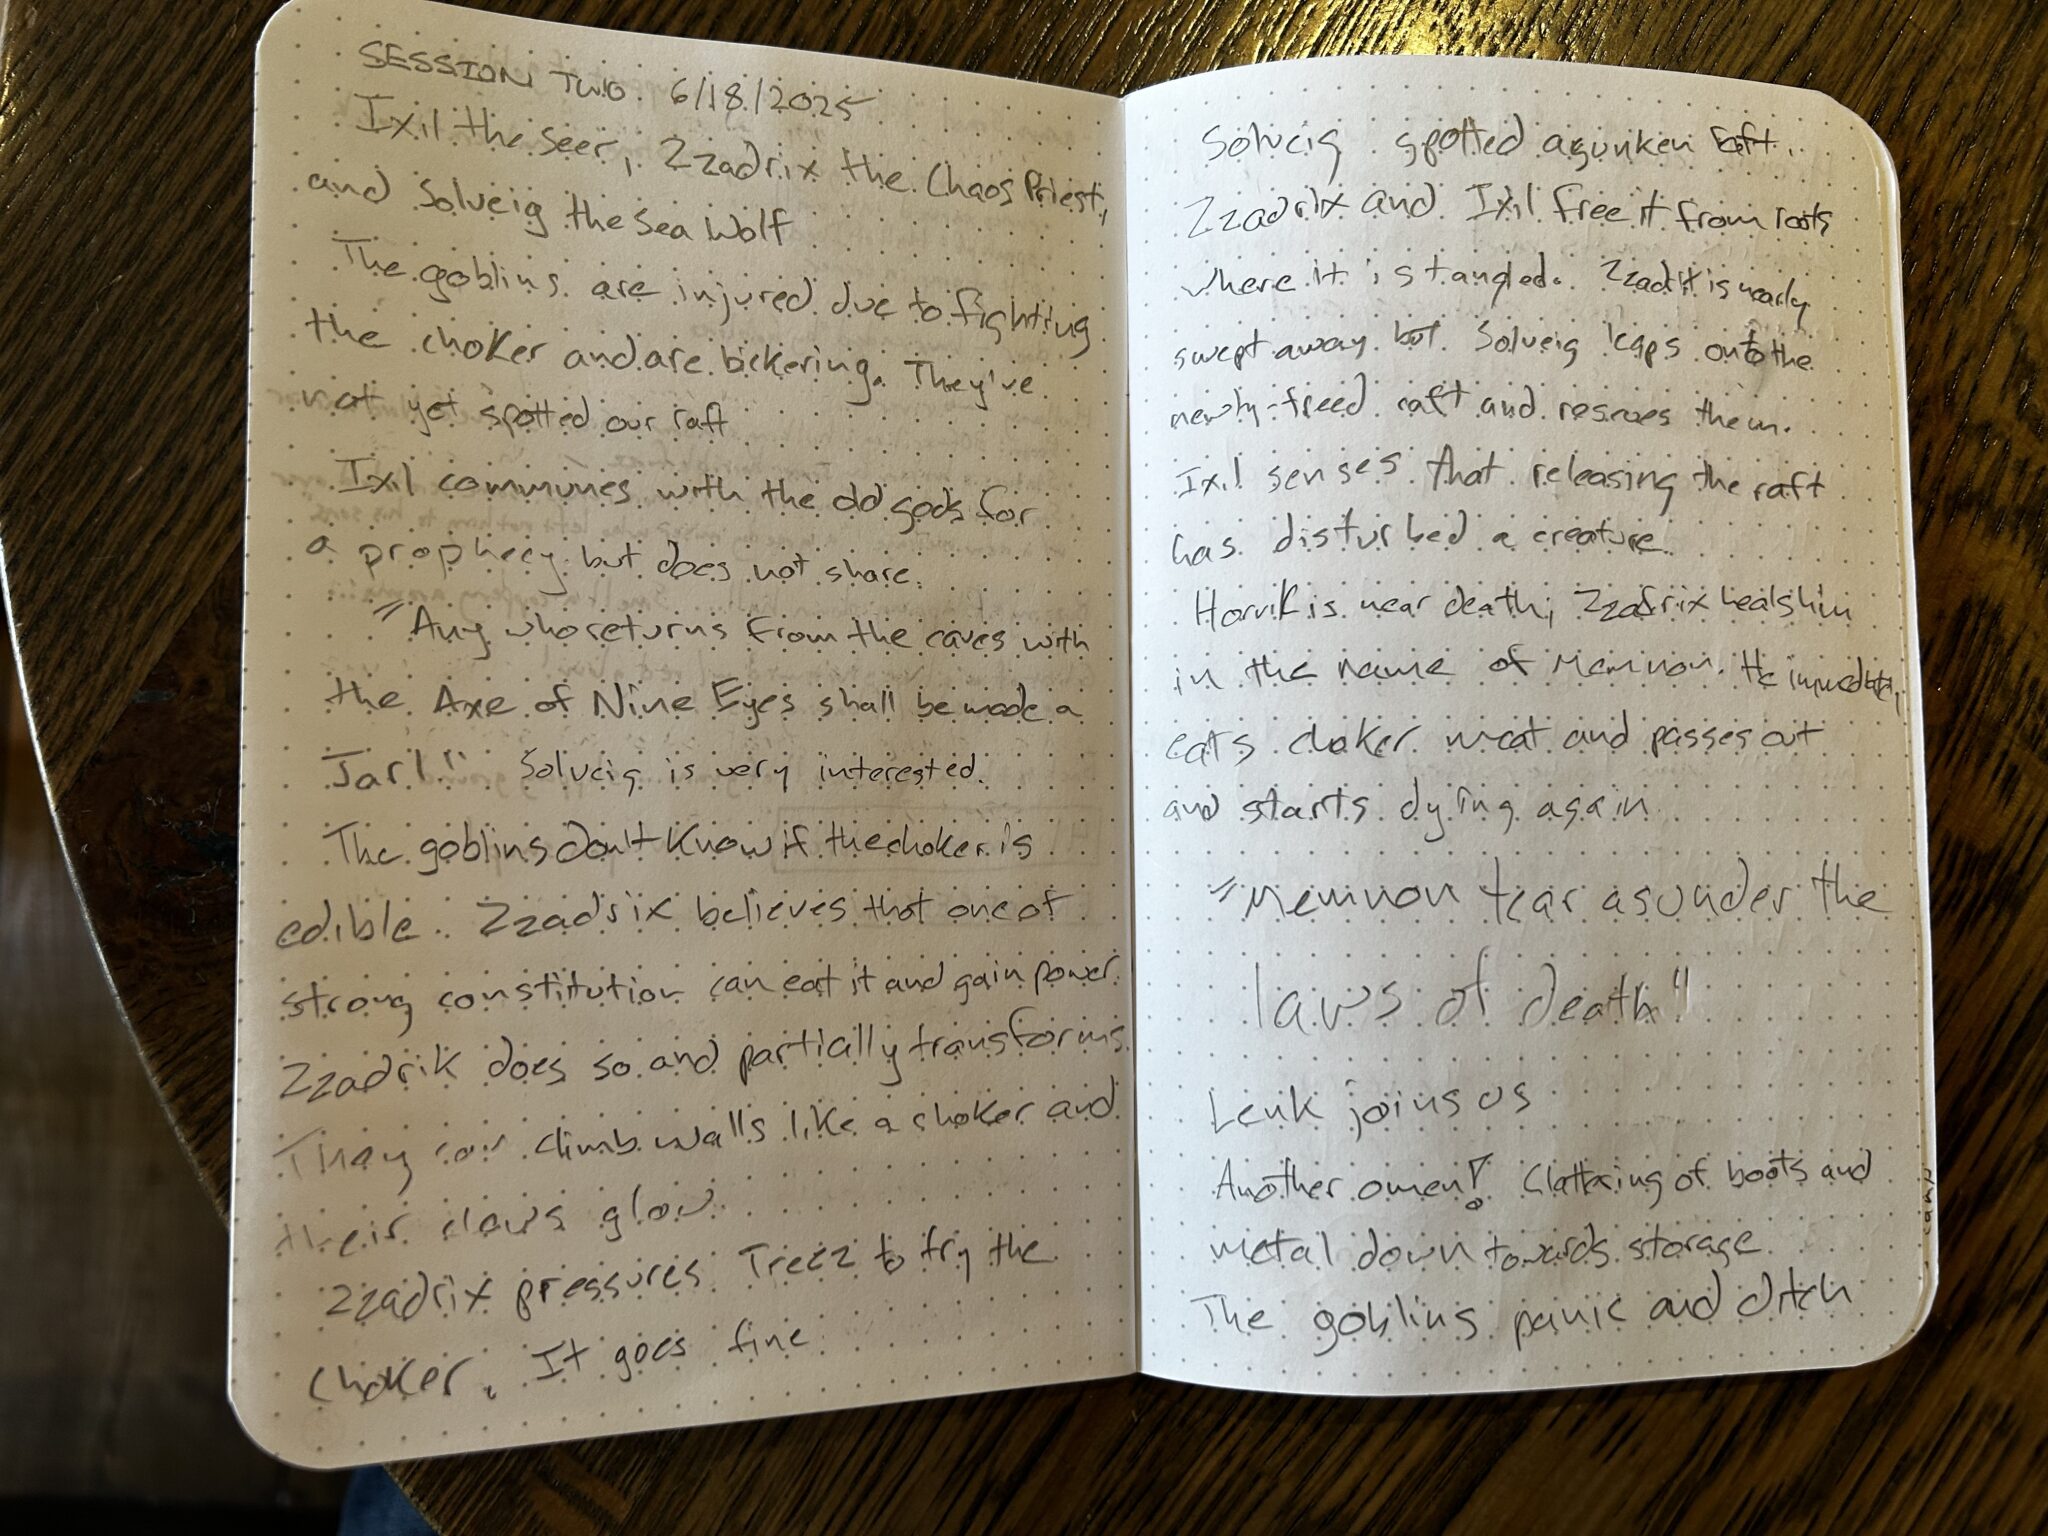 SESSION TWO 6/18/2025
Ixil the Seer, Zzadrix the Chaos Priest,
and Solveig the Sea Wolf
The goblins are injured due to fighting
the choker and are bickering. They've
not yet spotted our raft
Ixil communes with the old gods for
a prophecy but does not share.
"Any who returns from the caves with
the Axe of Nine Eyes shall be made a
Jarl!" Solveig is very interested.
The goblins don't know if the choker is
edible. Zzadrix believes that one of
strong constitution can eat it and gain power.
Zzadrik does so and partially transforms.
They can climb walls like a choker and
their claws glow
Zzadrix pressures Treez to try the
choker. It goes fine
Solveig spotted a sunken raft.
Zzadrix and Ixil free it from roots
where it is tangled. Zzadrix is nearly
swept away but Solveig leaps onto the
newly-freed raft and rescues them.
Ixil senses that releasing the raft
has disturbed a creature
Horvik is near death; Zzadrix heals him
in the name of Memnon. He immediately
eats choker meat and passes out
and starts dying again
"Memnon tear asunder the
laws of death"
Lenk joins us
Another omen! Clattering of boots and
metal down towards storage
The goblins panic and ditch